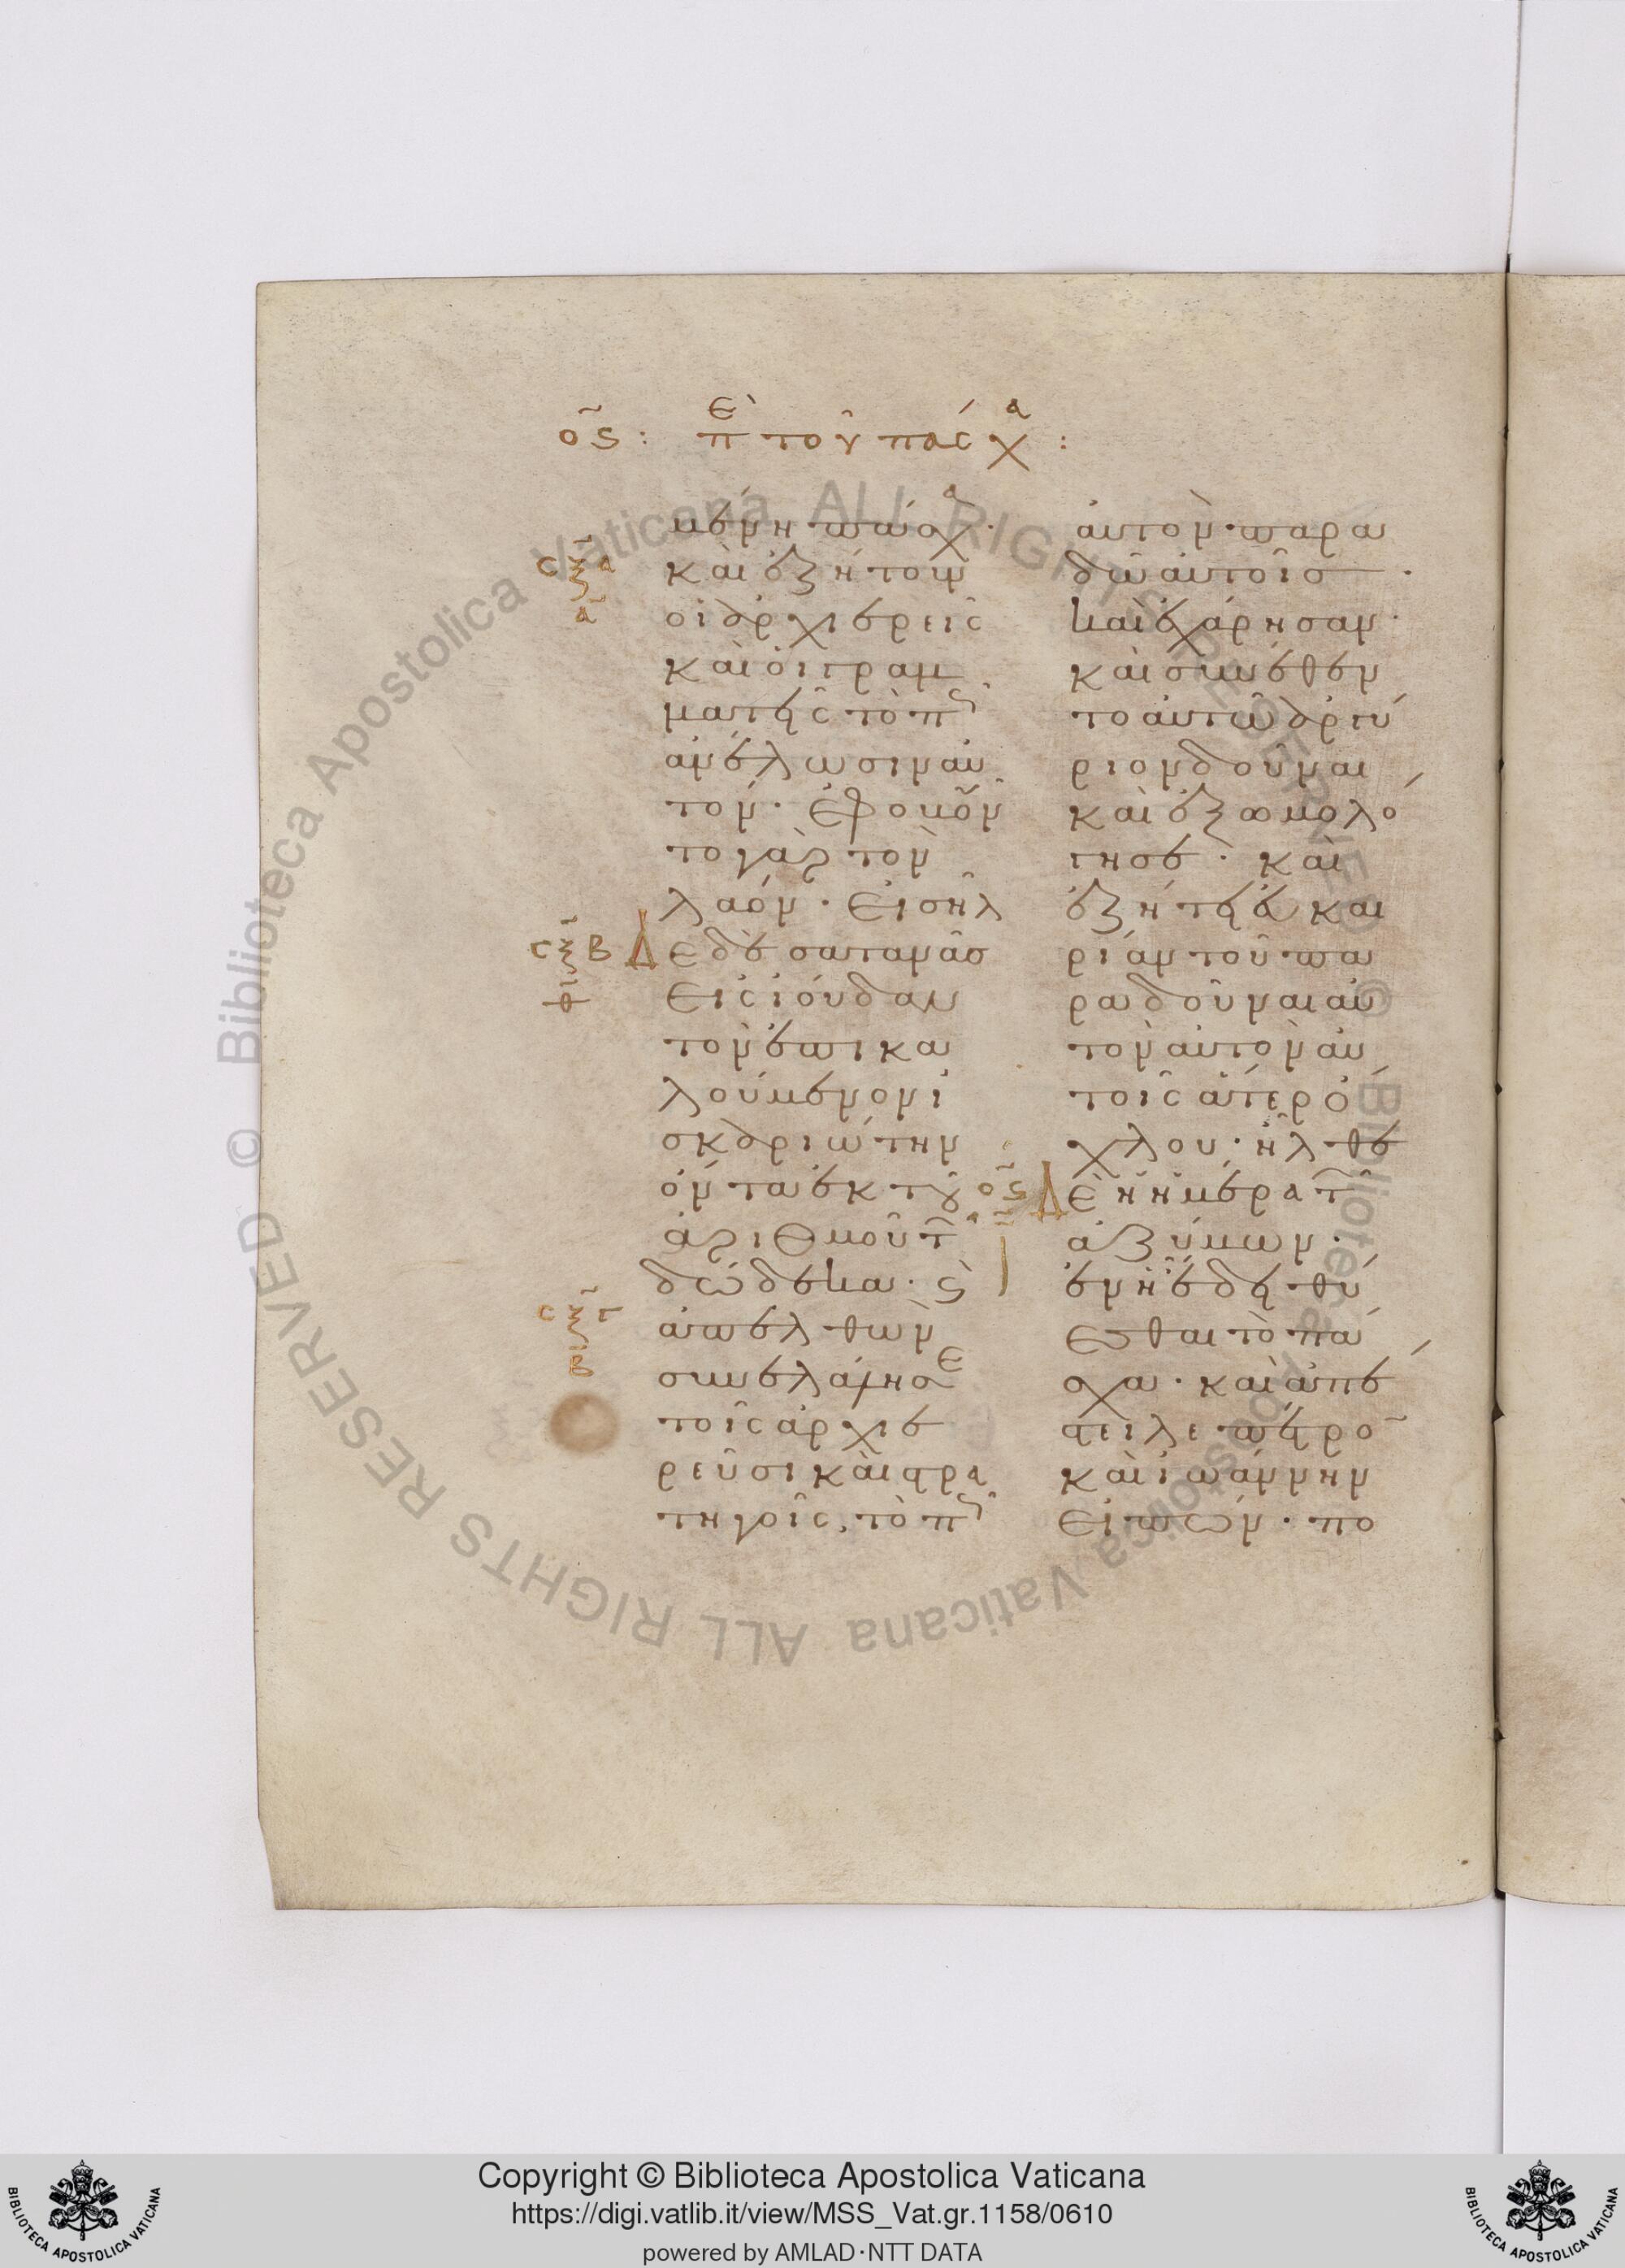 ος: πε του πάσχα:
μένη πάσχα·
καὶ ἐζήτουν
οἱ ἀρχιερεῖς
καὶ οἱ γραμ
ματεῖς τὸ πῶς
ἀνέλωσιν αὐ
τόν· Ἐφοβοῦν
το γὰρ τὸν
λαόν· Εἰσῆλ
Εδὲ σατανᾶσ
Εἰς ἰούδαν
τὸν ἐπικα
λούμενον ἰ
σκαριώτην
ὄντα ἐκ τοῦ
ἀριθμοῦ τῶν
δώδεκα· ϛ
ἀπελθὼν
συνελάλησε
τοῖς ἀρχιε
ρεῦσι καὶ στρα
τηγοῖς, τὸ πῶς
αὐτὸν παρα
δῶ αὐτοῖσ·
καὶ ἐχάρησαν·
καὶ συνέθεν
το αὐτῶ ἀργύ
ριον δοῦναι
καὶ ἐξωμολό
γησε· καὶ
ἐζήτει εὐκαι
ρίαν τοῦ πα
ραδοῦναι αὐ
τὸν αὐτὸν αὐ
τοῖς ἄτερ ὄ
χλου· ἦλθε
Δὲ ἡ ἡμέρα τῶν
ἀζύμων·
ἐν ἧ ἔδει θύ
εσθαι τὸ πά
σχα· καὶ ἀπέ
στειλε πέτρον
καὶ ἰωάννην
Εἰπών· πο
Copyright © Biblioteca Apostolica Vaticana
https://digi.vatlib.it/view/MSS_Vat.gr.1158/0610
powered by AMLAD·NTT DATA